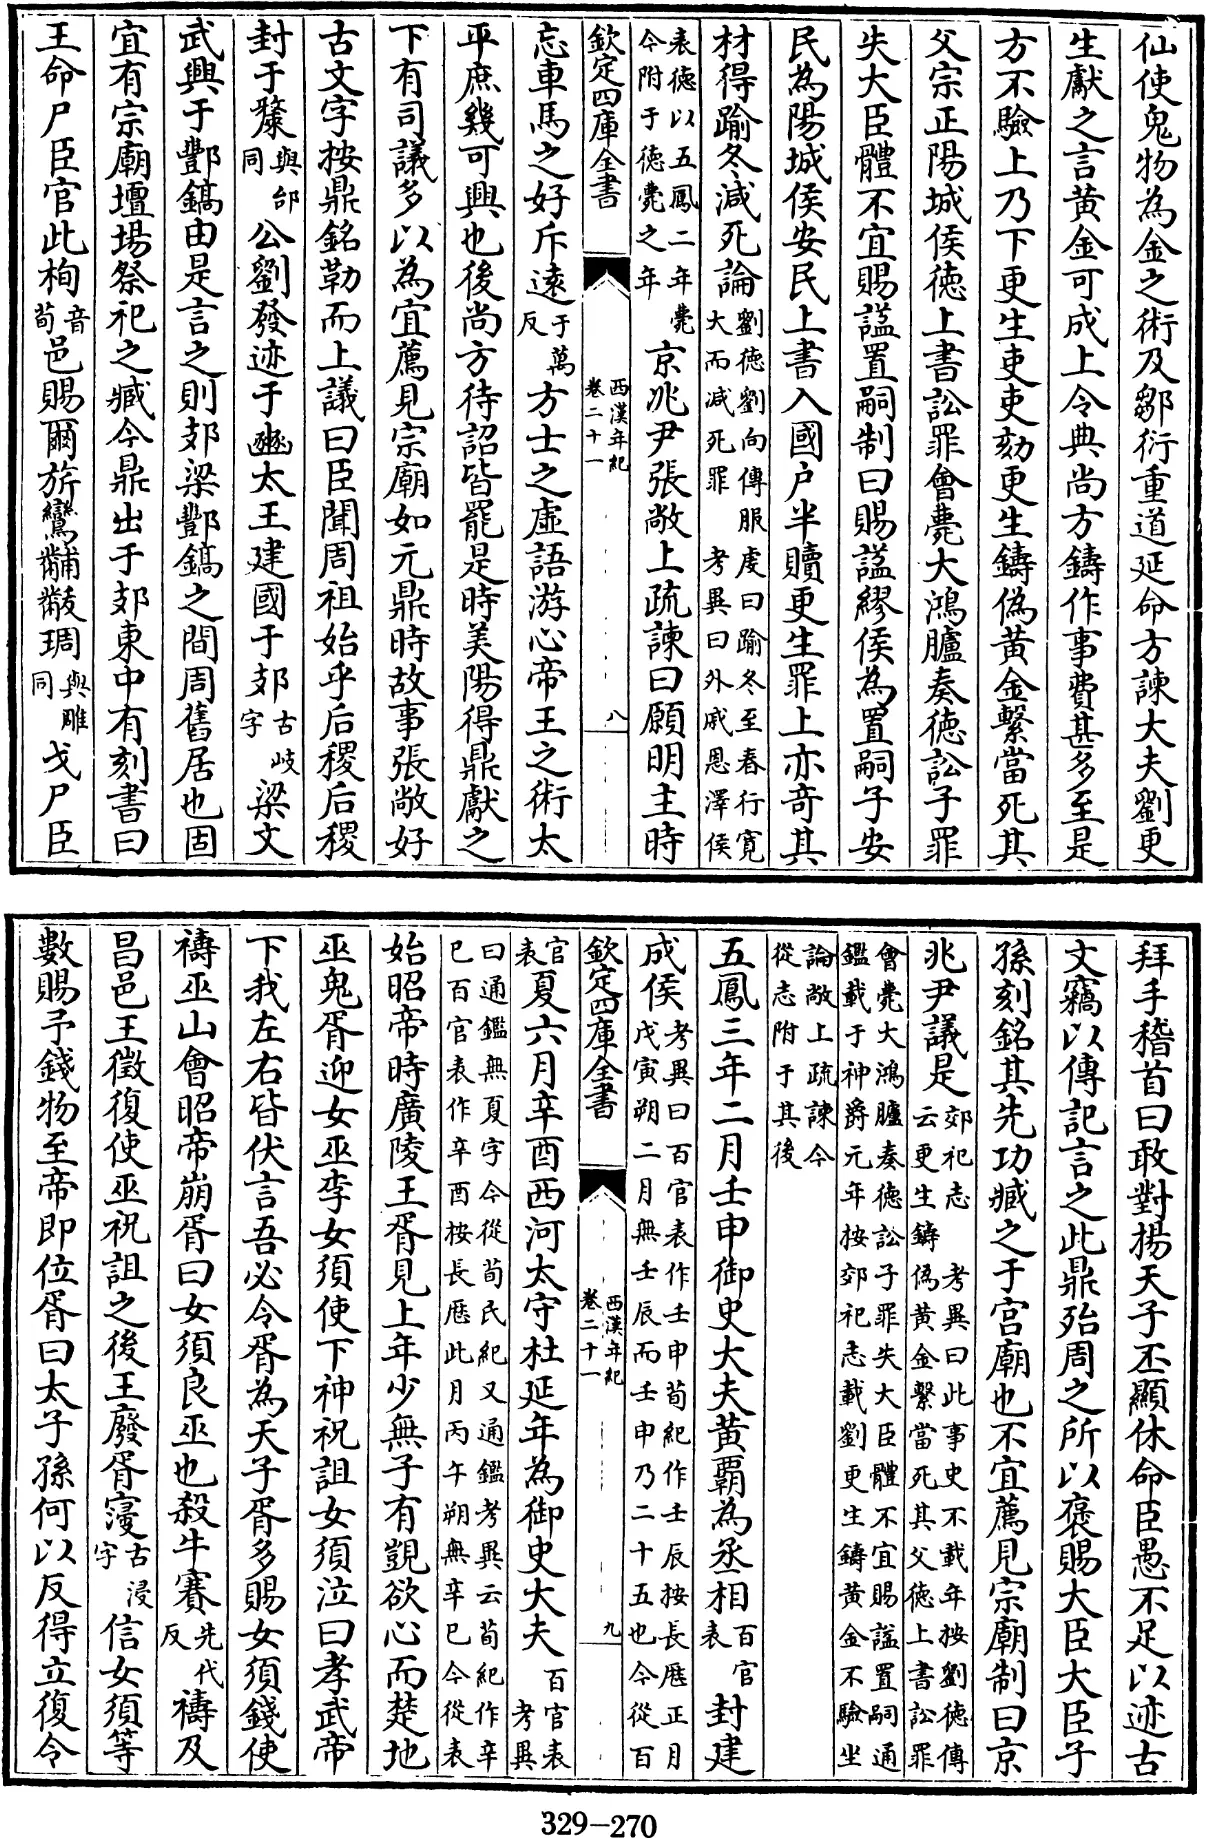 仙使鬼物為金之術及鄒衍重道延命方諫大夫劉更
生獻之言黃金可成上令典尚方鑄作事費甚多至是
方不驗上乃下更生吏吏劾更生鑄偽黃金繫當死其
父宗正陽城侯德上書訟罪會薨大鴻臚奏德訟子罪
失大臣體不宜賜諡置嗣制曰賜諡繆侯為置嗣子安
民為陽城侯安民上書入國户半贖更生罪上亦奇其
材得踰冬減死論劉德劉向傳服虔曰踰冬至春行寛大而減死罪 考異曰外戚恩澤侯
表德以五鳳二年薨今附于德薨之年京兆尹張敞上疏諫曰願明主時
欽定四庫全書 西漢年紀 卷二十一 八
忘車馬之好斥遠于萬反方士之虛語游心帝王之術太
平庶幾可興也後尚方待詔皆罷是時美陽得鼎獻之
下有司議多以為宜薦見宗廟如元鼎時故事張敞好
古文字按鼎銘勒而上議曰臣聞周祖始乎后稷后稷
封于斄與邰同公劉發迹于豳太王建國于郊古岐字梁文
武興于酆鎬由是言之則郊梁酆鎬之間周舊居也固
宜有宗廟壇場祭祀之臧今鼎出于郊東中有刻書曰
王命尸臣官此栒音荀邑賜爾旂鸞黼黻琱與雕同戈尸臣
拜手稽首曰敢對揚天子丕顯休命臣愚不足以迹古
文竊以傳記言之此鼎殆周之所以褒賜大臣大臣子
孫刻銘其先功臧之于宫廟也不宜薦見宗廟制曰京
兆尹議是郊祀志 考異曰此事史不載年按劉德傳云更生鑄偽黃金繫當死其父德上書訟罪
會薨大鴻臚奏德訟子罪失大臣體不宜賜諡置嗣通鑑載于神爵元年按郊祀志載劉更生鑄黃金不驗坐
論敞上疏諫今從志附于其後
五鳳三年二月壬申御史大夫黃霸為丞相百官表封建
成侯考異曰百官表作壬申荀紀作壬辰按長厯正月戊寅朔二月無壬辰而壬申乃二十五也今從百
欽定四庫全書 西漢年紀 卷二十一 九
官表夏六月辛酉西河太守杜延年為御史大夫百官表 考異
曰通鑑無夏字今從荀氏紀又通鑑考異云荀紀作辛巳百官表作辛酉按長厯此月丙午朔無辛巳今從表
始昭帝時廣陵王胥見上年少無子有覬欲心而楚地
巫鬼胥迎女巫李女須使下神祝詛女須泣曰孝武帝
下我左右皆伏言吾必令胥為天子胥多賜女須錢使
禱巫山會昭帝崩胥曰女須良巫也殺牛賽先代反禱及
昌邑王徵復使巫祝詛之後王廢胥寖古浸字信女須等
數賜予錢物至帝即位胥曰太子孫何以反得立復令
329-270